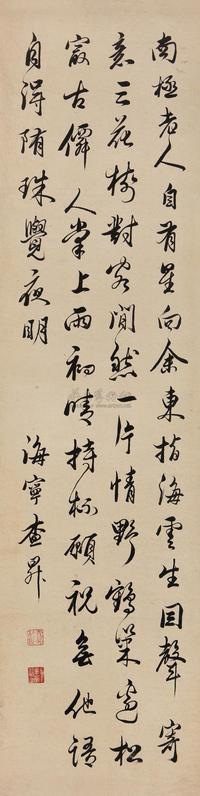 南極老人自有星向余東指海雲生因聲寄
意三花樹對客閒然一片情野鶴巢邊松
最古僊人掌上雨初晴持杯願祝無他語
自得隋珠覺夜明
海寧查昇